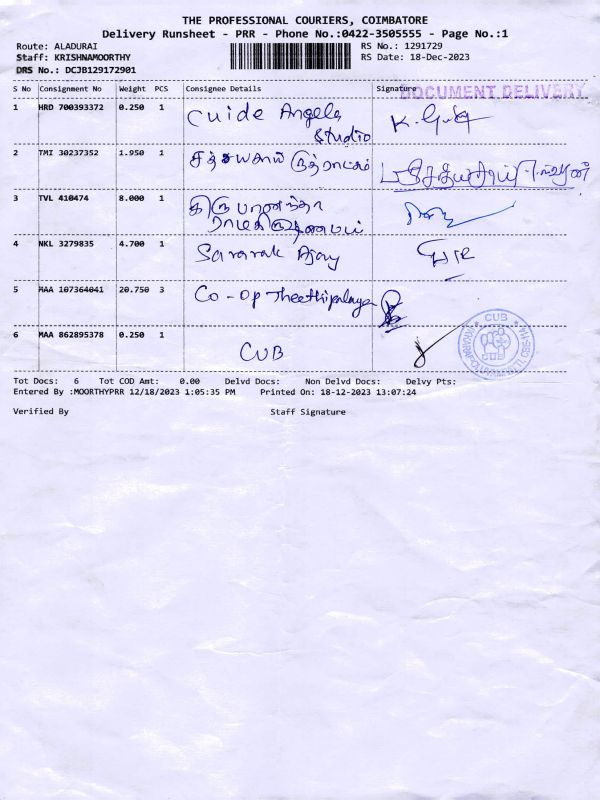 THE PROFESSIONAL COURIERS, COIMBATORE
Delivery Runsheet - PRR - Phone No.:0422-3505555 - Page No.:1
Route: ALADURAI
Staff: KRISHNAMOORTHY
DRS No.: DCJB129172901
RS No.: 1291729
RS Date: 18-Dec-2023
S No Consignment No Weight PCS Consignee Details Signature
DOCUMENT DELIVERY
1 HRD 700393372 0.250 1 Cuide Angels
Studio
2 TMI 30237352 1.950 1
3 TVL 410474 8.000 1
4 NKL 3279835 4.700 1 Ajay
5 MAA 107364041 20.750 3 Co-Op Theethipalayam
6 MAA 862895378 0.250 1 CUB
CUB
Tot Docs: 6 Tot COD Amt: 0.00 Delvd Docs: Non Delvd Docs: Delvy Pts:
Entered By :MOORTHYPRR 12/18/2023 1:05:35 PM Printed On: 18-12-2023 13:07:24
Verified By Staff Signature